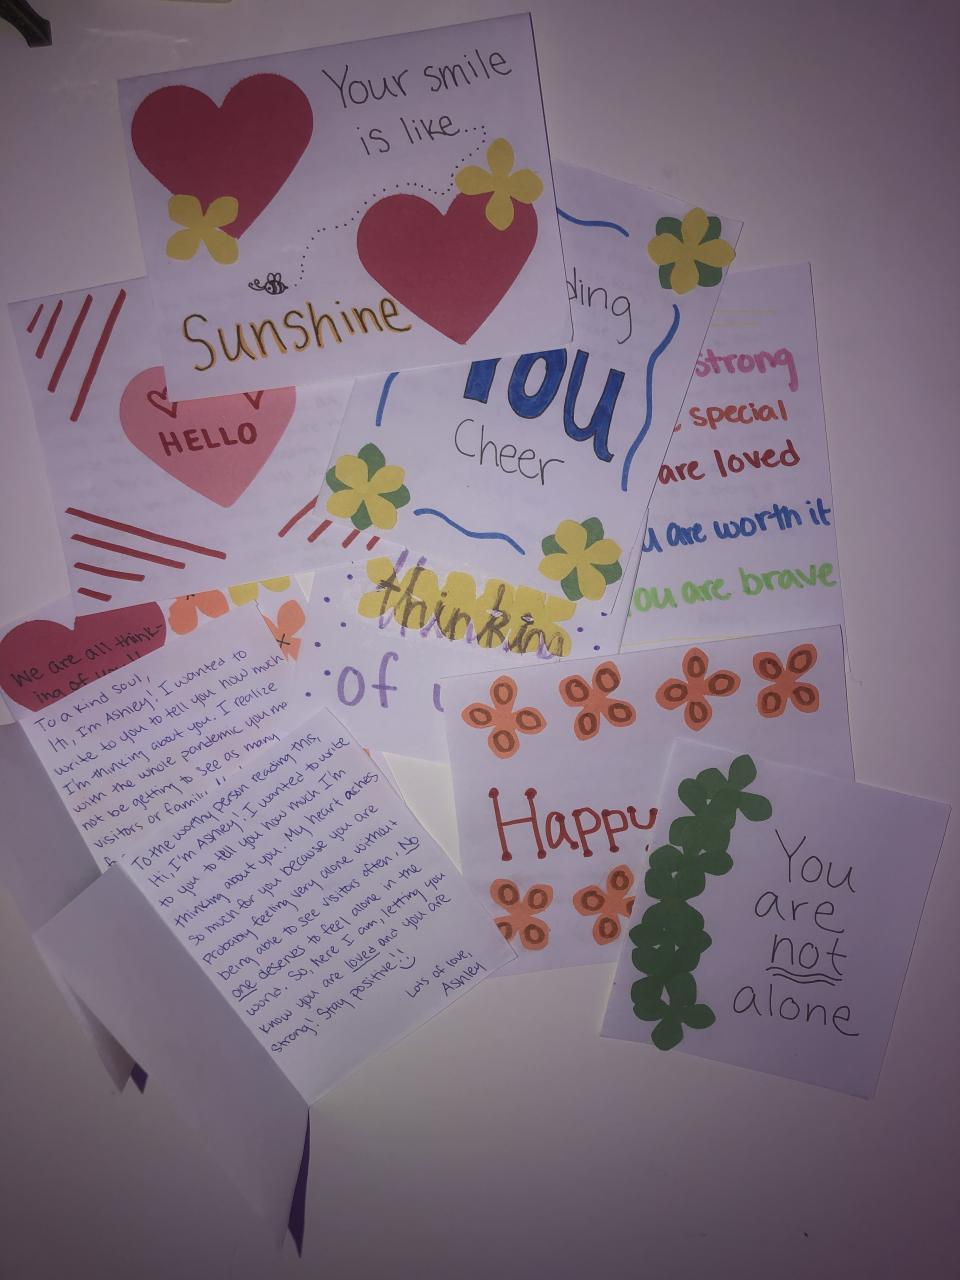 Your smile
is like...
Sunshine
HELLO
ding
You
Cheer
strong
special
are loved
are worth it
ou are brave
thinking
of
We are all think-
ing of
To a kind soul,
Hi, I'm Ashley! I wanted to
write to you to tell you how much
I'm thinking about you. I realize
with the whole pandemic you ma
not be getting to see as many
visitors or famil
To the worthy person reading this,
Hi, I'm Ashley! I wanted to write
to you to tell you how much I'm
thinking about you. My heart aches
so much for you because you are
probably feeling very alone without
being able to see visitors often. No
one deserves to feel alone in the
world. So, here I am, letting you
know you are loved and you are
strong! Stay positive!! :)
Lots of love,
Ashley
Happy
You
are
not
alone